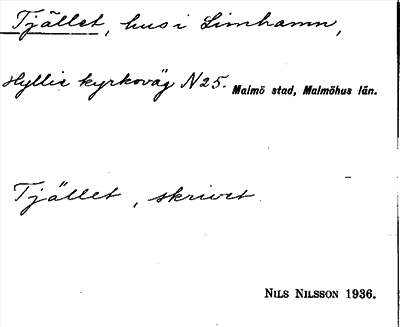 Tjället, hus i Limhamn,
Hyllie kyrkoväg N 25. Malmö stad, Malmöhus län.
Tjället, skrivet.
NILS NILSSON 1936.